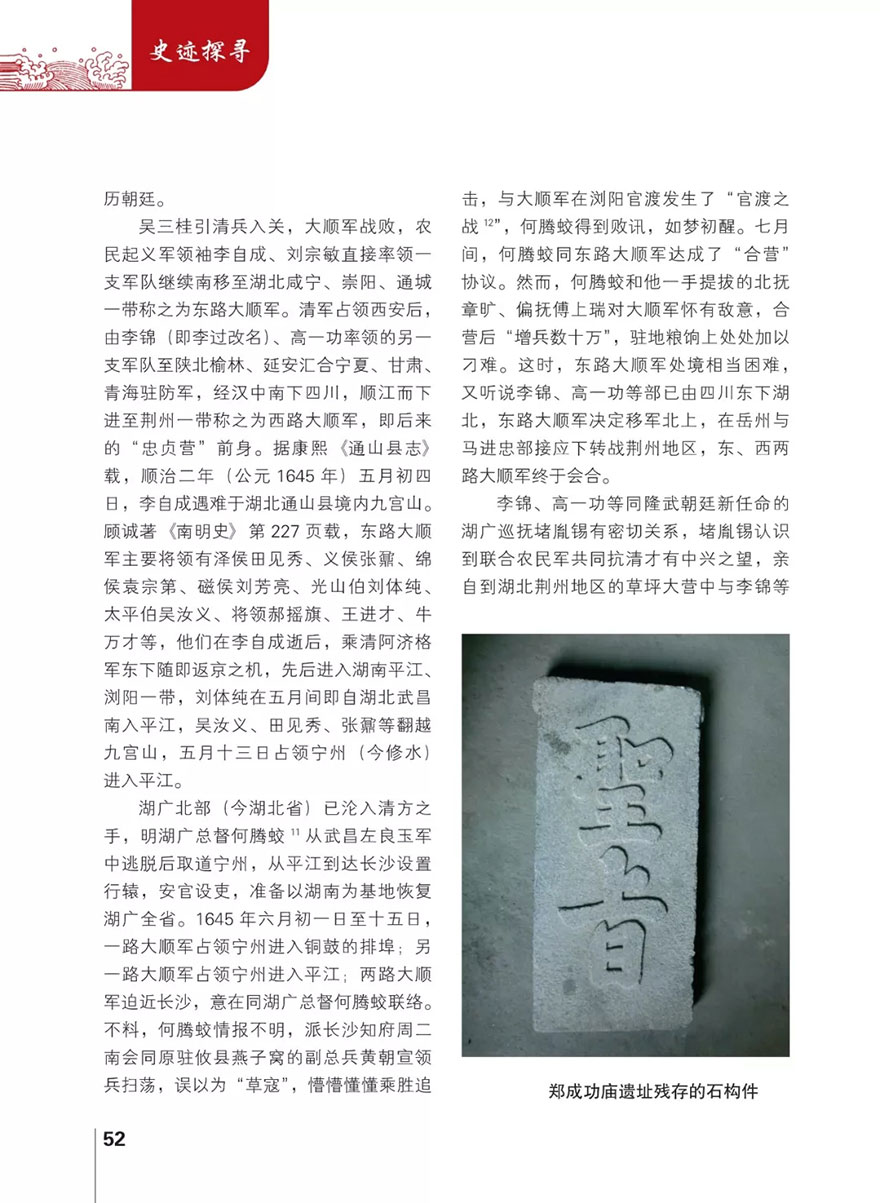 史迹探寻
历朝廷。
吴三桂引清兵入关，大顺军战败，农
民起义军领袖李自成、刘宗敏直接率领一
支军队继续南移至湖北咸宁、崇阳、通城
一带称之为东路大顺军。清军占领西安后，
由李锦（即李过改名）、高一功率领的另一
支军队至陕北榆林、延安汇合宁夏、甘肃、
青海驻防军，经汉中南下四川，顺江而下
进至荆州一带称之为西路大顺军，即后来
的“忠贞营”前身。据康熙《通山县志》
载，顺治二年（公元 1645 年）五月初四
日，李自成遇难于湖北通山县境内九宫山。
顾诚著《南明史》第 227 页载，东路大顺
军主要将领有泽侯田见秀、义侯张鼐、绵
侯袁宗第、磁侯刘芳亮、光山伯刘体纯、
太平伯吴汝义、将领郝摇旗、王进才、牛
万才等，他们在李自成逝后，乘清阿济格
军东下随即返京之机，先后进入湖南平江、
浏阳一带，刘体纯在五月间即自湖北武昌
南入平江，吴汝义、田见秀、张鼐等翻越
九宫山，五月十三日占领宁州（今修水）
进入平江。
湖广北部（今湖北省）已沦入清方之
手，明湖广总督何腾蛟 11 从武昌左良玉军
中逃脱后取道宁州，从平江到达长沙设置
行辕，安官设吏，准备以湖南为基地恢复
湖广全省。1645 年六月初一日至十五日，
一路大顺军占领宁州进入铜鼓的排埠；另
一路大顺军占领宁州进入平江；两路大顺
军迫近长沙，意在同湖广总督何腾蛟联络。
不料，何腾蛟情报不明，派长沙知府周二
南会同原驻攸县燕子窝的副总兵黄朝宣领
兵扫荡，误以为“草寇”，懵懵懂懂乘胜追
击，与大顺军在浏阳官渡发生了“官渡之
战 12”，何腾蛟得到败讯，如梦初醒。七月
间，何腾蛟同东路大顺军达成了“合营”
协议。然而，何腾蛟和他一手提拔的北抚
章旷、偏抚傅上瑞对大顺军怀有敌意，合
营后“增兵数十万”，驻地粮饷上处处加以
刁难。这时，东路大顺军处境相当困难，
又听说李锦、高一功等部已由四川东下湖
北，东路大顺军决定移军北上，在岳州与
马进忠部接应下转战荆州地区，东、西两
路大顺军终于会合。
李锦、高一功等同隆武朝廷新任命的
湖广巡抚堵胤锡有密切关系，堵胤锡认识
到联合农民军共同抗清才有中兴之望，亲
自到湖北荆州地区的草坪大营中与李锦等
郑成功庙遗址残存的石构件
52